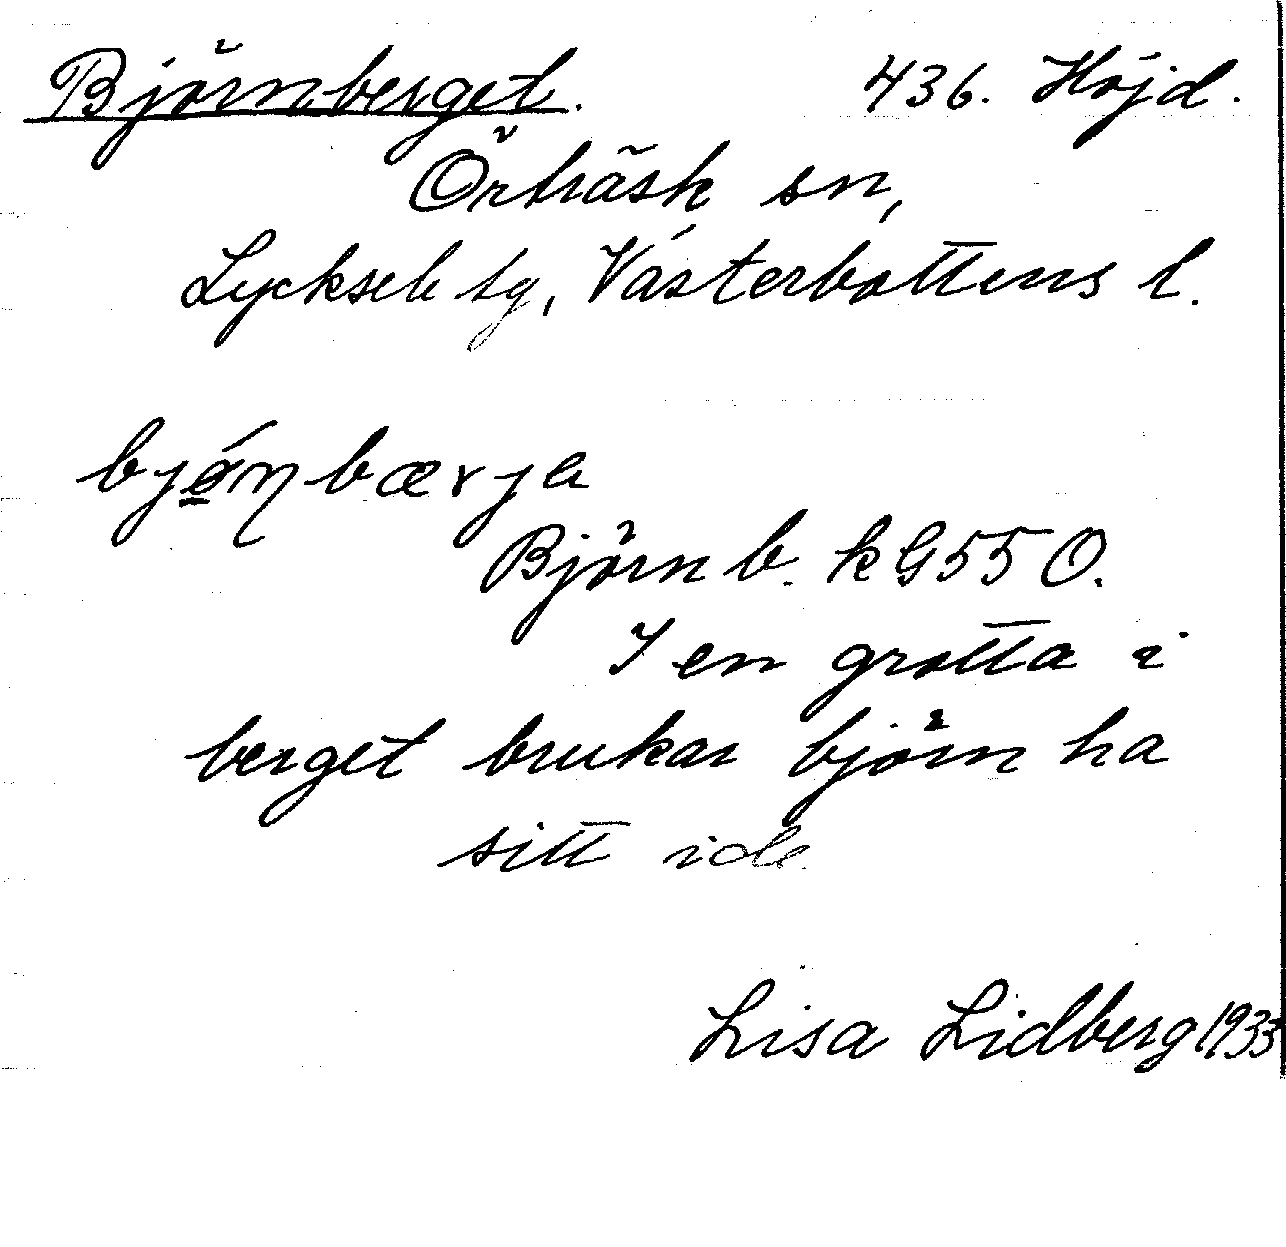 Björnberget. 436. Höjd.
Örträsk sn,
Lycksele tg, Västerbottens l.
bjǿ̲ɳbærja
Björnb. kG55O.
I en grotta i
berget brukar björn ha
sitt ide.
Lisa Lidberg 1933